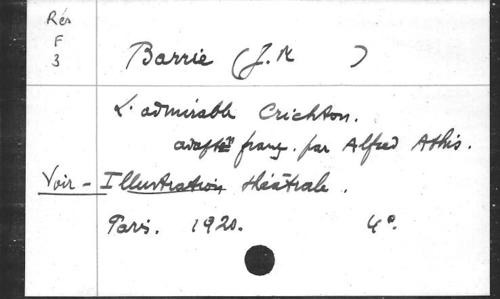 Rés
F
3
Barrie (J. M )
L'admirable Crichton.
adaptn franç. par Alfred Athis.
Voir - Illustration théâtrale.
Paris. 1920. 4°.